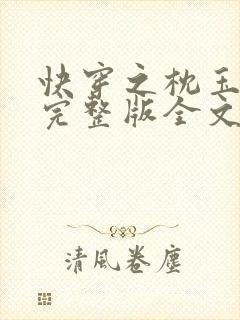 快穿之枕玉
完整版全文
清風卷塵